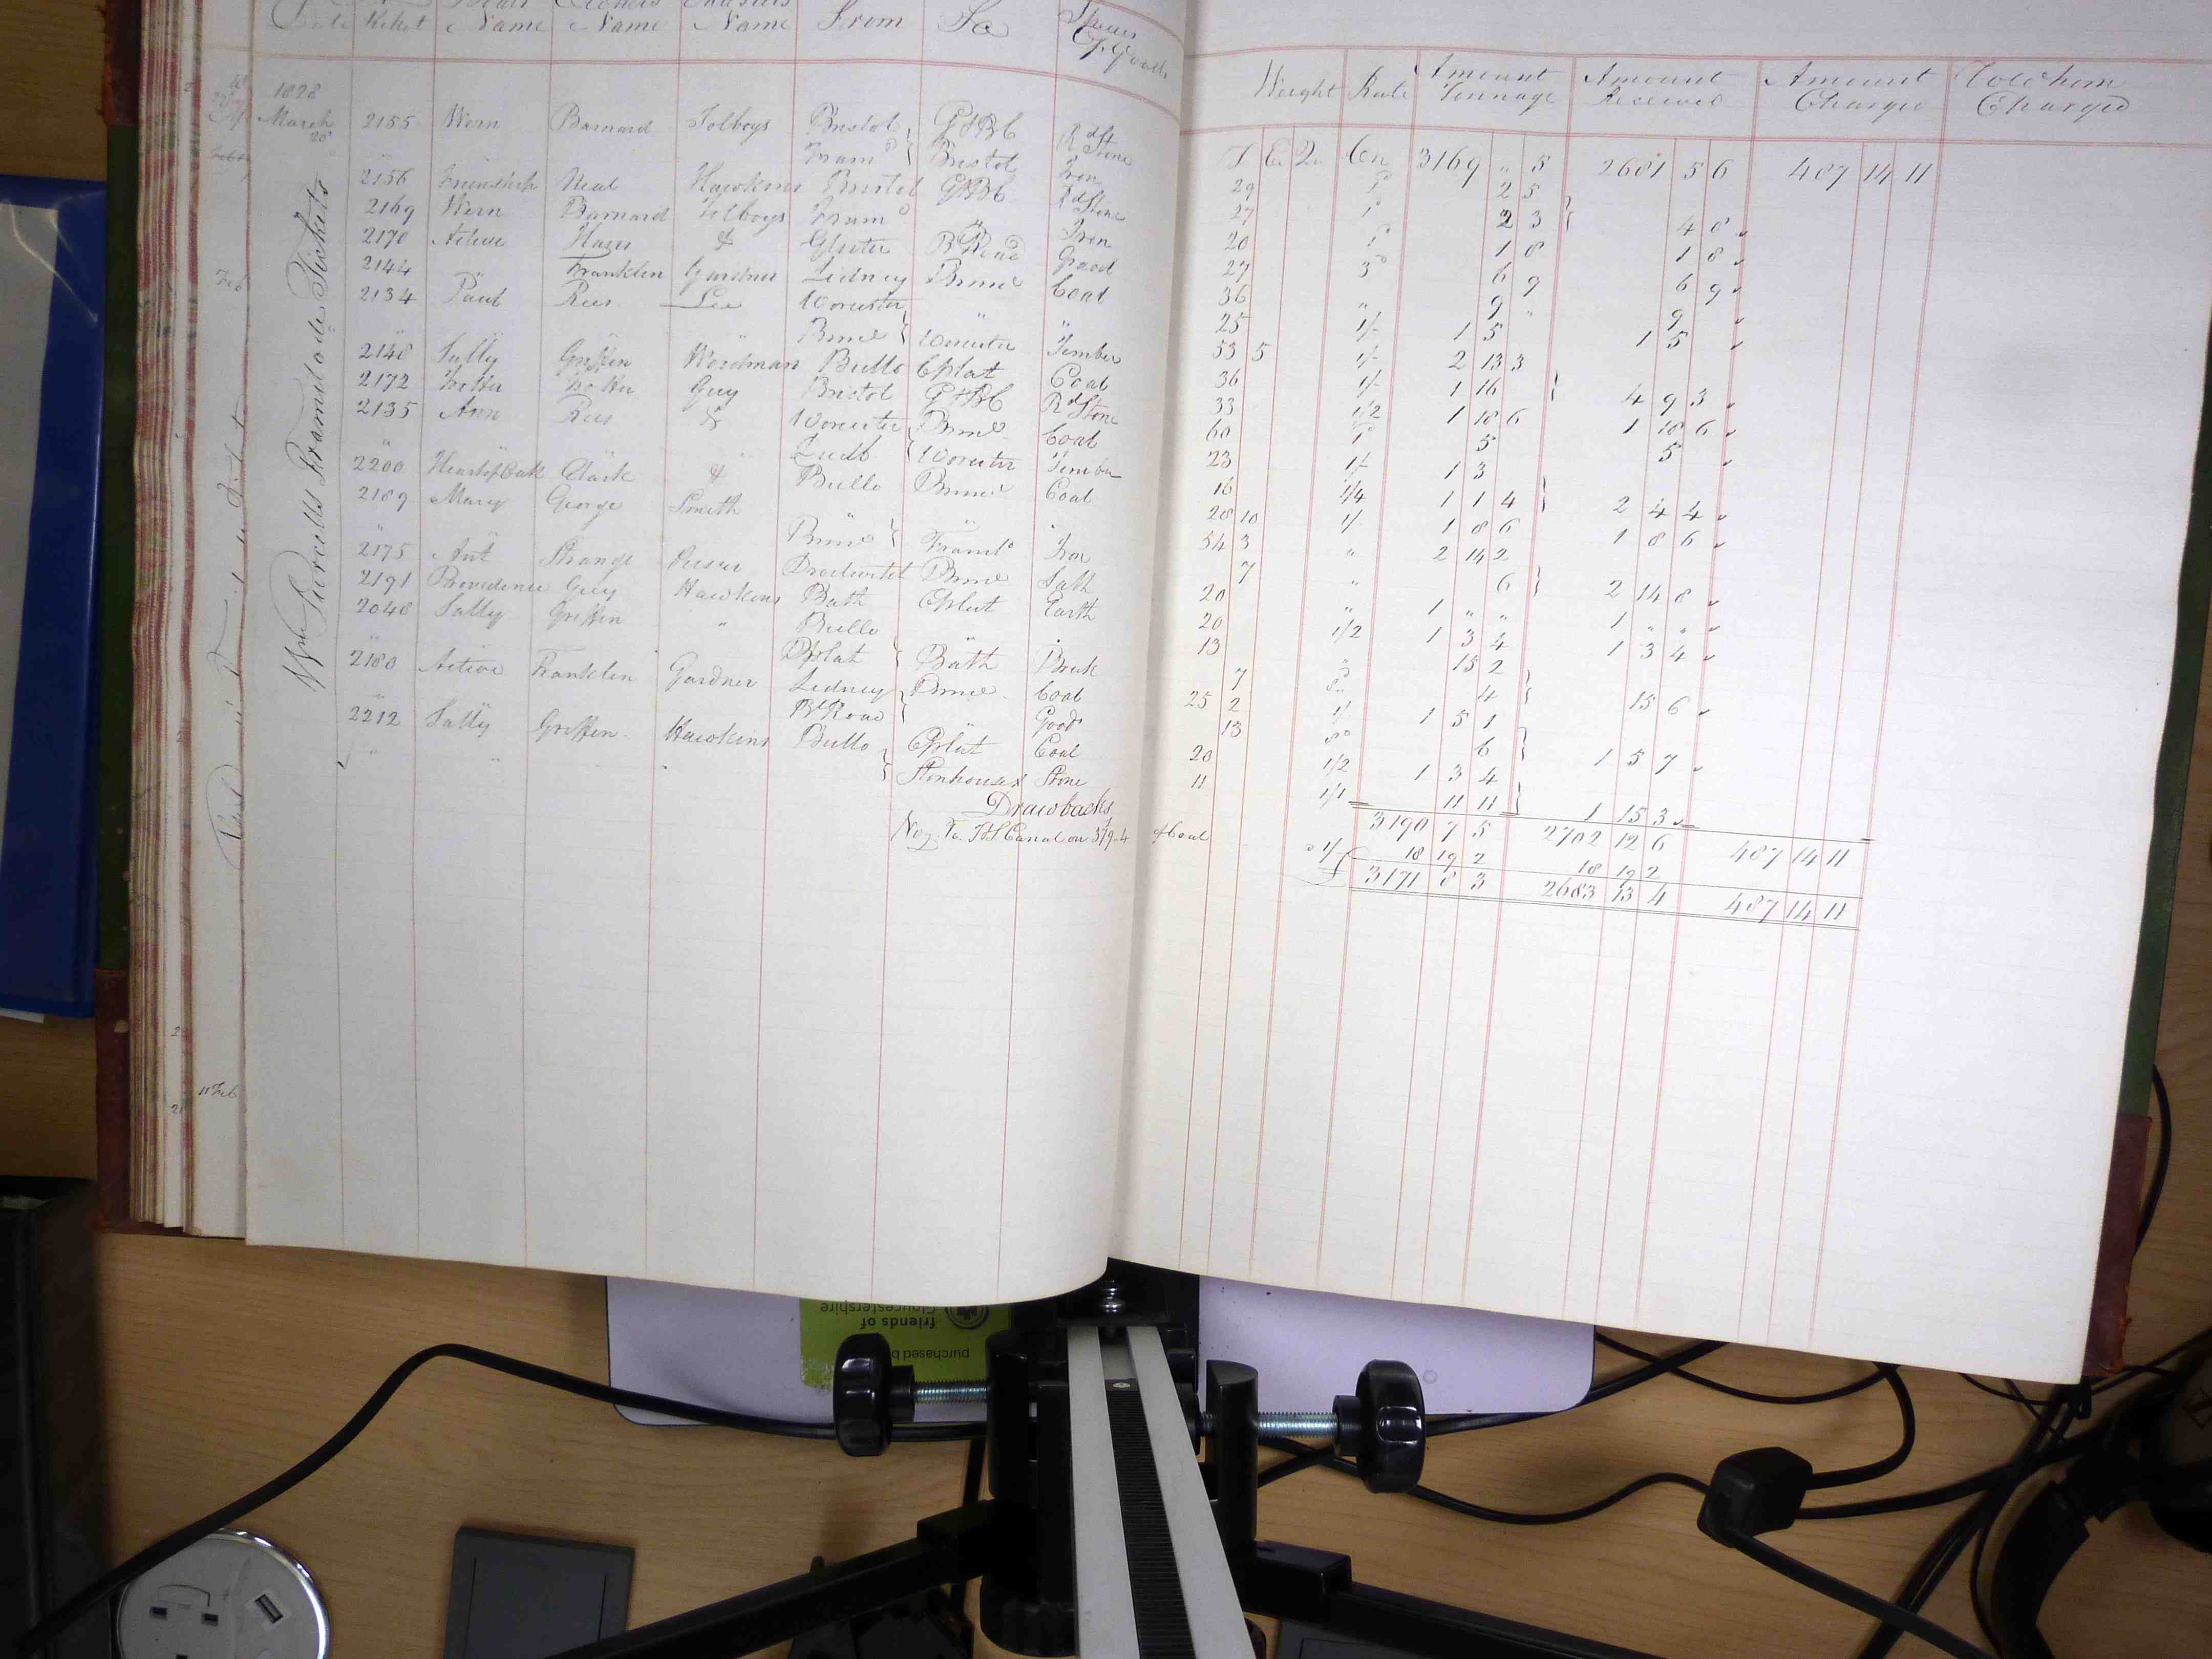 Date Ticket Boats Name Owners Name Masters Name From To Species of Goods
Weight Rate Amount Tonnage Amount Received Amount Charged
1828
T C Qr 3169 " 5 2681 5 6 487 14 11
March 25 2155 Wern Barnard Tolboys Bristol G&BC Rd Stone 29 1d 2 5
Fram Bristol Iron 27 1d 2 3 4 8
2156 Friendship Neal Hawkins Bristol G&BC Rd Stone 20 1d 1 8 1 8
2169 Wern Barnard Tolboys Fram Iron 27 3d 6 9 6 9
2170 Active Hazes & Gloster B Road Good 36 " 9 " 9 "
2144 Franklin Gardner Lidney Brimd Coal 25 1/- 1 5 1 5
2134 Paul Rees Lee Worcester " " 53 5 1/- 2 13 3
Brimd Worcester Timber 36 1/- 1 16 4 9 3
2148 Sally Griffin Woodman Bullo Cplat Coal 33 1/2 1 18 6 1 18 6
2172 Trotter Trotter Guy Bristol G&BC Rd Stone 60 1d 5 5
2135 Ann Rees & Worcester Brimd Coal 23 1/- 1 3
Worcester Timber 16 1/4 1 1 4 2 4 4
2200 Heart of Oak Clark & Bullo Brimd Coal 28 10 1/ 1 8 6 1 8 6
2189 Mary George Smith " " " 54 3 " 2 14 2
Brimd Framo Iron 7 " 6 2 14 8
2175 Ant Strange Droitwich Brimd Salt 20 " 1 " " 1 " "
2191 Providence Guy Hawkins Bath Cplat Earth 20 1/2 1 3 4 1 3 4
2048 Sally Griffin " Bullo " " 13 15 2
Cplat Bath Brick 7 4 15 6
2180 Active Franklin Gardner Lidney Brimd Coal 25 2 1/ 1 5 1
Bt Road Good 13 6 1 5 7
2212 Sally Griffin Hawkins Bullo Cplat Coal 20 1/2 1 3 4
" " Stonehouse Stone 11 1/1 11 11 1 15 3
3190 7 5 2702 12 6 487 14 11
Drawbacks
To T&S Canal on 379.4 of Coal 1/- 18 19 2 18 19 2
£ 3171 8 3 2683 13 4 487 14 11
Wm Purcells Framilode Tickets
Feb
11 Feb
purchased b
friends of
Gloucestershire